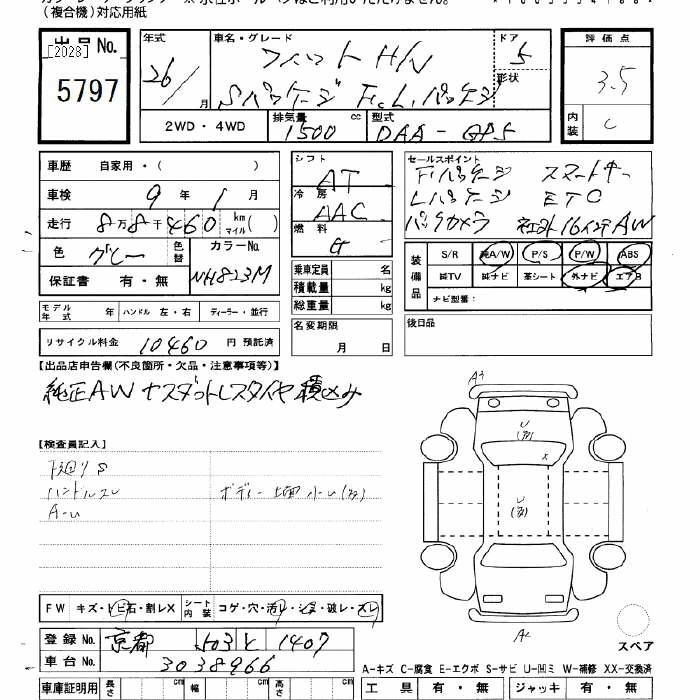 (複合機)対応用紙
出品No.
[2028]
5797
年式
26/
月
車名・グレード
フィットH/V
Sパッケージ F.L.パッケージ
ドア
5
形状
2WD・4WD
排気量
1500
cc
型式
DAA-GP5
評価点
3.5
内装
C
車歴 自家用・( )
車検 9年 1月
走行 8万8千460 km マイル( )
色 グレー
色替
カラーNo.
NH823M
保証書 有・無
シフト
AT
冷房
AAC
燃料
G
乗車定員 名
積載量 kg
総重量 kg
セールスポイント
Fパッケージ スマートキー
Lパッケージ ETC
バックカメラ 社外16インチAW
装備品
S/R 純A/W P/S P/W ABS
純TV 純ナビ 革シート 外ナビ エアB
ナビ型番:
モデル年式 年 ハンドル 左・右 ディーラー・並行
名変期限
月 日
後日品
リサイクル料金 10460 円 預託済
【出品店申告欄(不良箇所・欠品・注意事項等)】
純正AWナスダットレスタイヤ積込み
【検査員記入】
下廻りS
ハンドルスレ
A-U
ボディー上面小U(多)
A3
U
(多)
X
U
(多)
A2
スペア
FW キズ・トビ石・割レX
シート内装 コゲ・穴・汚レ・シミ・破レ・スレ
登録No. 京都 503 と 1407
車台No. 3038966
車庫証明用 長さ cm 幅 cm 高さ cm
A-キズ C-腐食 E-エクボ S-サビ U-凹ミ W-補修 XX-交換済
工具 有・無 ジャッキ 有・無